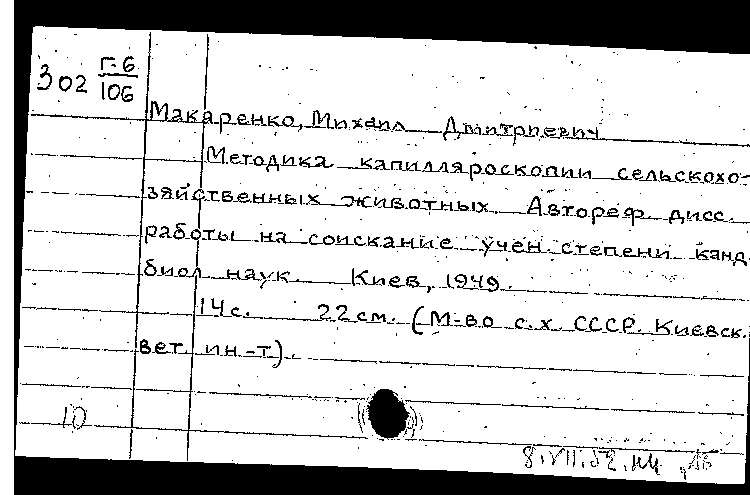 302 Г-6
106
Макаренко, Михаил Дмитриевич
Методика капилляроскопии сельскохо-
зяйственных животных. Автореф. дисс.
работы на соискание учен. степени канд.
биол. наук. Киев, 1949.
14 с. 22 см. (М-во с.х. СССР. Киевск.
вет. ин-т).
10
8.VII.52.